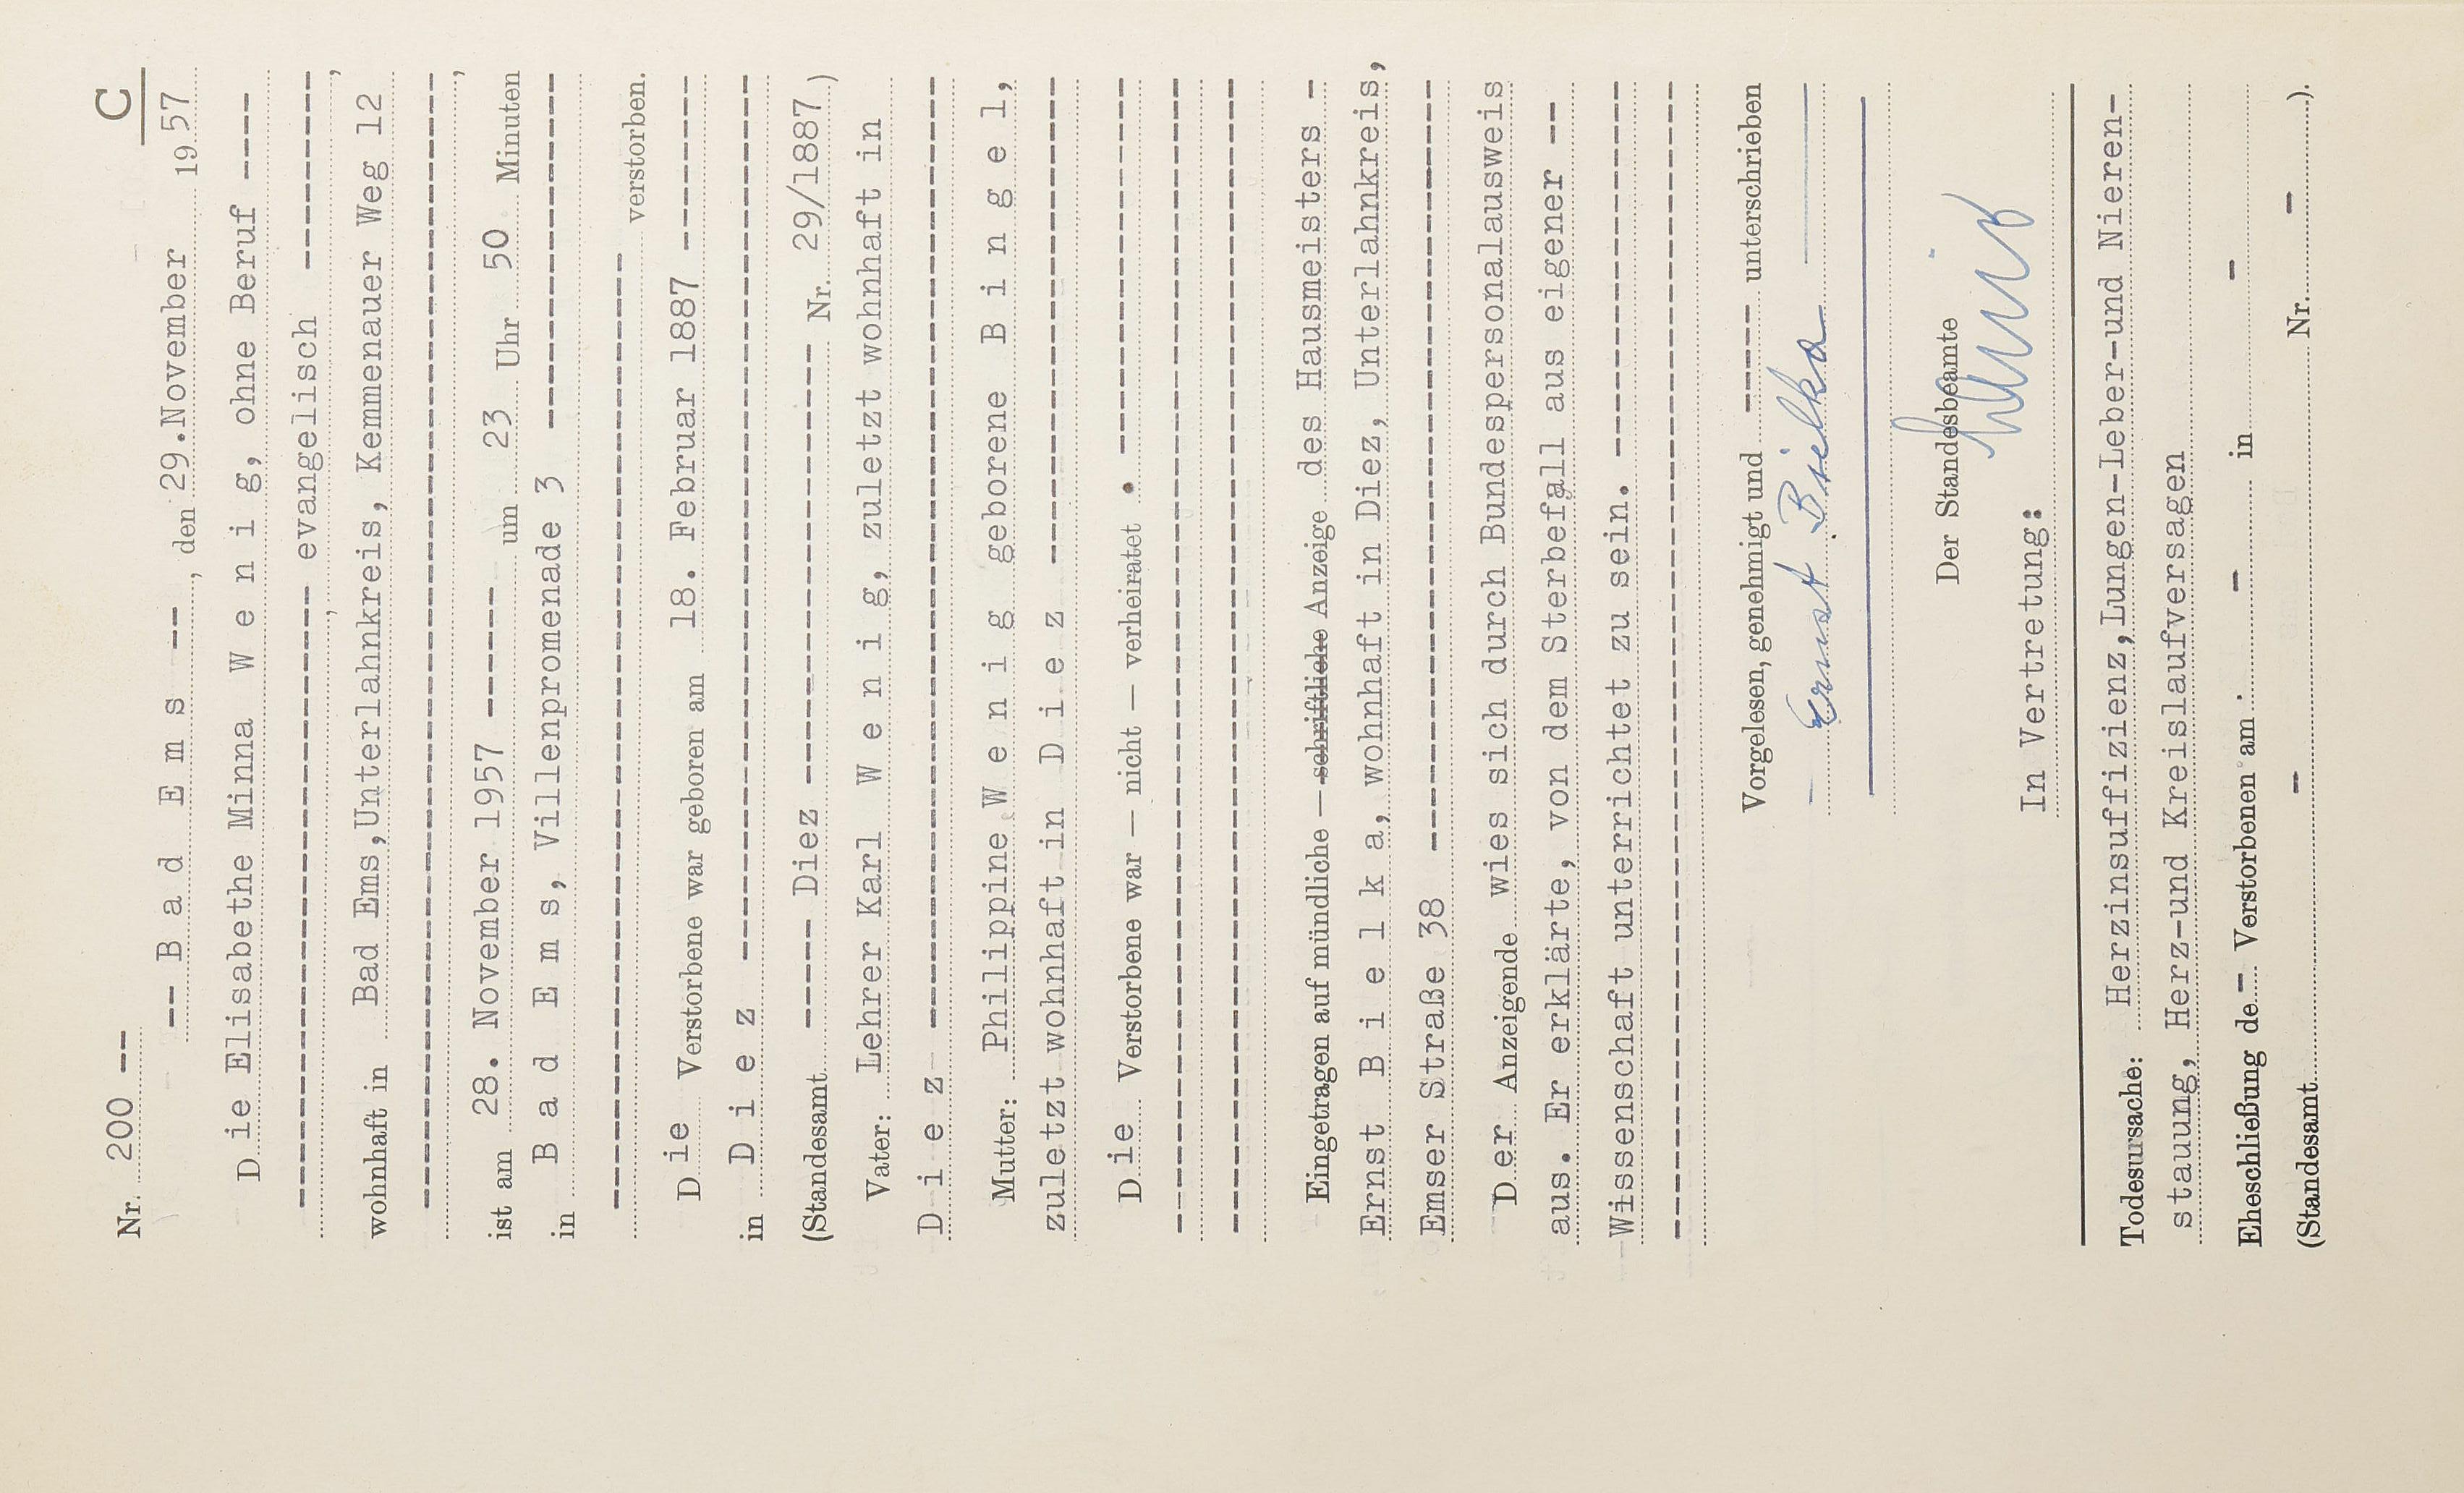 C
Nr. 200 --
-- B a d E m s --, den 29.November 19 57
Die Elisabethe Minna W e n i g, ohne Beruf ----
---------------------- evangelisch --------,
wohnhaft in Bad Ems,Unterlahnkreis, Kemmenauer Weg 12
----------------------------------------------,
ist am 28. November 1957 ------ um 23 Uhr 50 Minuten
in B a d E m s, Villenpromenade 3 ---------------
---------------------------------------- verstorben.
Die Verstorbene war geboren am 18. Februar 1887 --------
in D i e z ------------------------------------
(Standesamt ----- Diez ------------------ Nr. 29/1887 )
Vater: Lehrer Karl W e n i g, zuletzt wohnhaft in
D i e z ---------------------------------------
Mutter: Philippine W e n i g geborene B i n g e l,
zuletzt wohnhaft in D i e z --------------------
Die Verstorbene war — nicht — verheiratet . ---------------
-----------------------------------------------
-----------------------------------------------
Eingetragen auf mündliche — schriftliche Anzeige des Hausmeisters -
Ernst B i e l k a, wohnhaft in Diez, Unterlahnkreis,
Emser Straße 38 --------------------------------
Der Anzeigende wies sich durch Bundespersonalausweis
aus. Er erklärte, von dem Sterbefall aus eigener --
Wissenschaft unterrichtet zu sein. ---------------
-----------------------------------------------
Vorgelesen, genehmigt und ----- unterschrieben
Ernst Bielka
Der Standesbeamte
In Vertretung:
Todesursache: Herzinsuffizienz,Lungen-Leber-und Nieren-
stauung, Herz-und Kreislaufversagen
Eheschließung de - Verstorbenen am - in -
(Standesamt - Nr. - ).